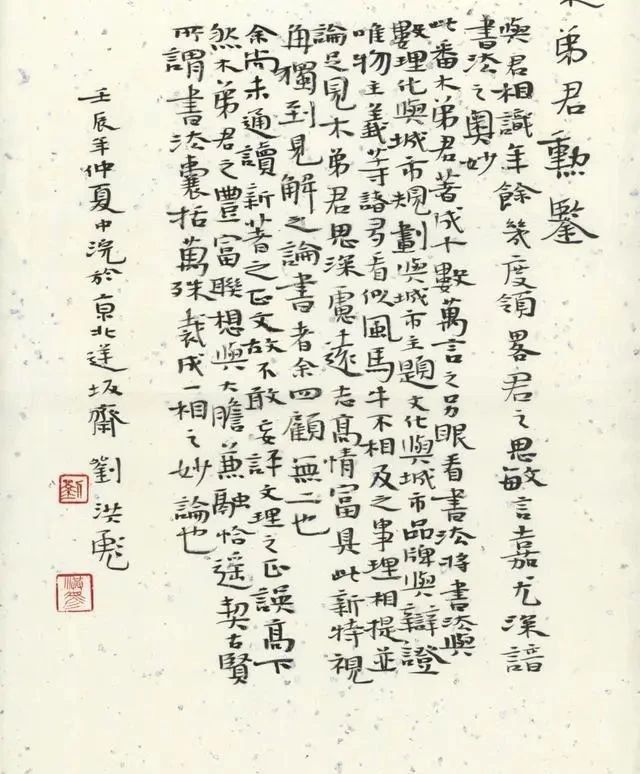 弟君勳鑒
與君相識年餘幾度領畧君之思敏言嘉尤深諳
書法之奧妙
此番木弟君著成十數萬言之另眼看書法將書法與
數理化與城市規劃與城市主題文化與城市品牌與辯證
唯物主義等諸多看似風馬牛不相及之事理相提並
論足見木弟君思深慮遠志高情富具此新特視
角獨到見解之論書者余四顧無二也
余尚未通讀新著之正文故不敢妄評文理之正誤高下
然木弟君之豐富聯想與大膽兼融恰遥契古賢
所謂書法囊括萬殊裁成一相之妙論也
壬辰年仲夏中浣於京北送坂齋劉洪彪
劉